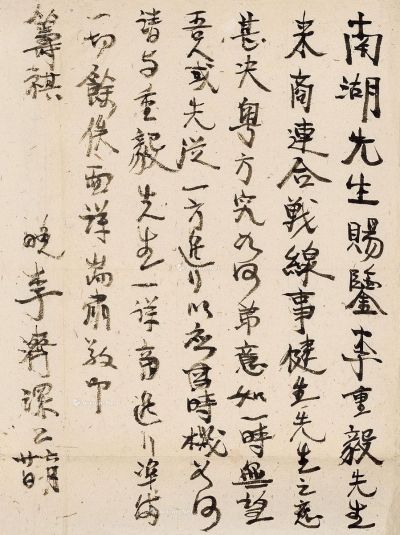 南湖先生賜鑒李重毅先生
来商連合戰線事健生先生之意
甚决粵方究如何弟意如一時無望
吾人或先從一方進行以應時機如何
請与重毅先生一詳商進行準備
一切餘俟面詳耑肅敬叩
籌祺
晚李濟深上